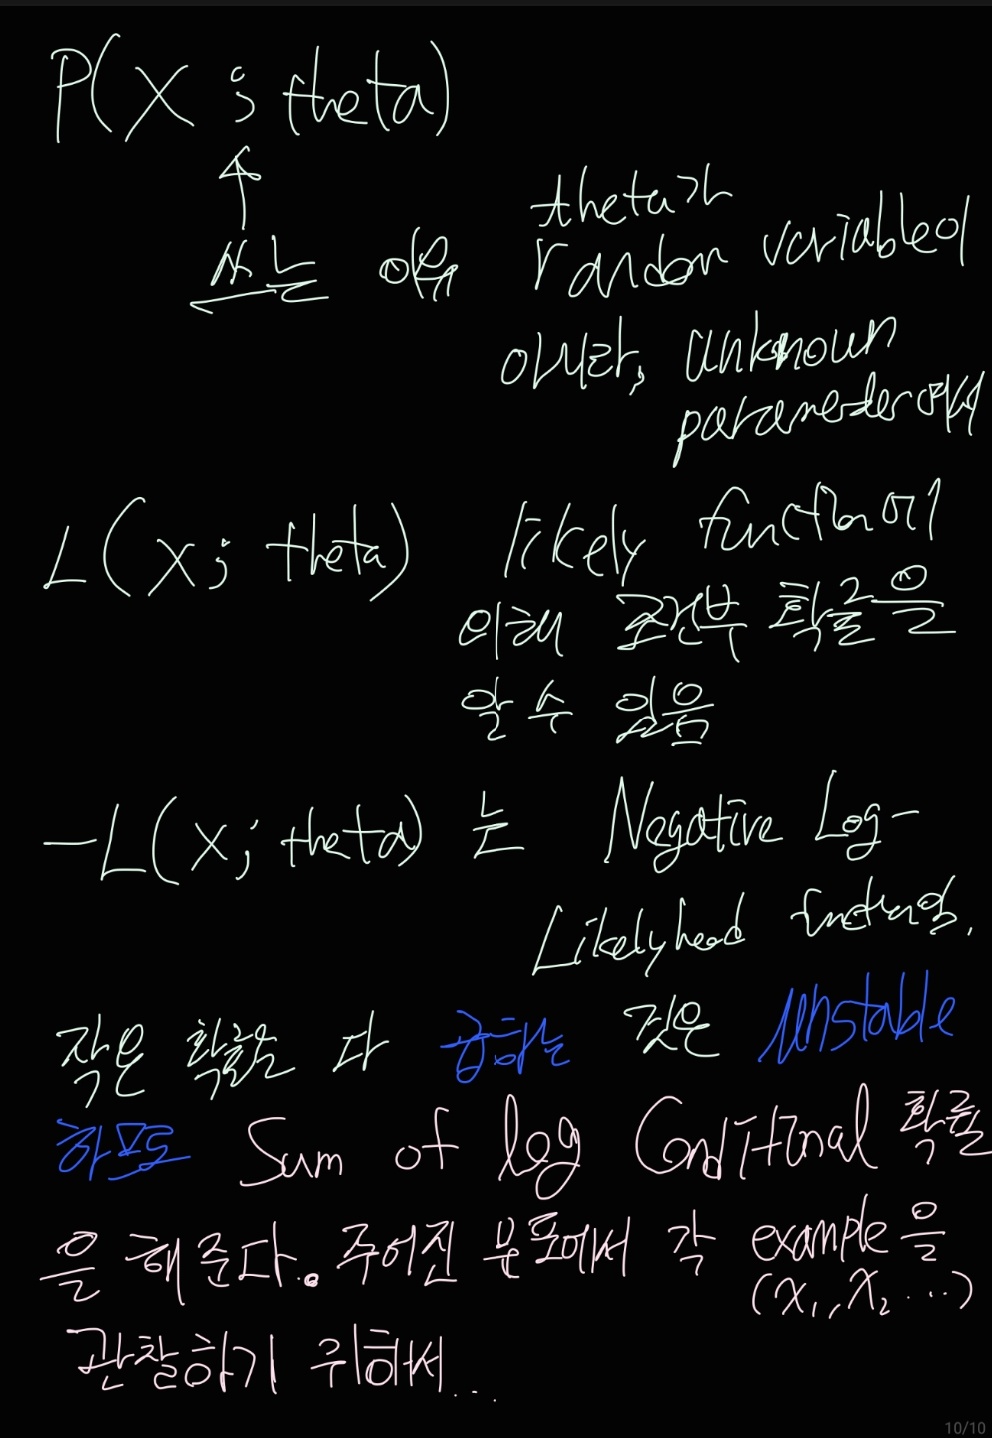 P(X ; theta)
쓰는 이유 theta가
random variable이
아니라, unknown
parameter여서
L(X; theta) likely function에
의해 조건부 확률을
알 수 있음
-L(X; theta) 는 Negative Log-
Likelyhood function임.
작은 확률을 다 곱하는 것은 unstable
하므로 Sum of log Conditional 확률
을 해준다. 주어진 분포에서 각 example을
(X1, X2 ...)
관찰하기 위하서...
10/10